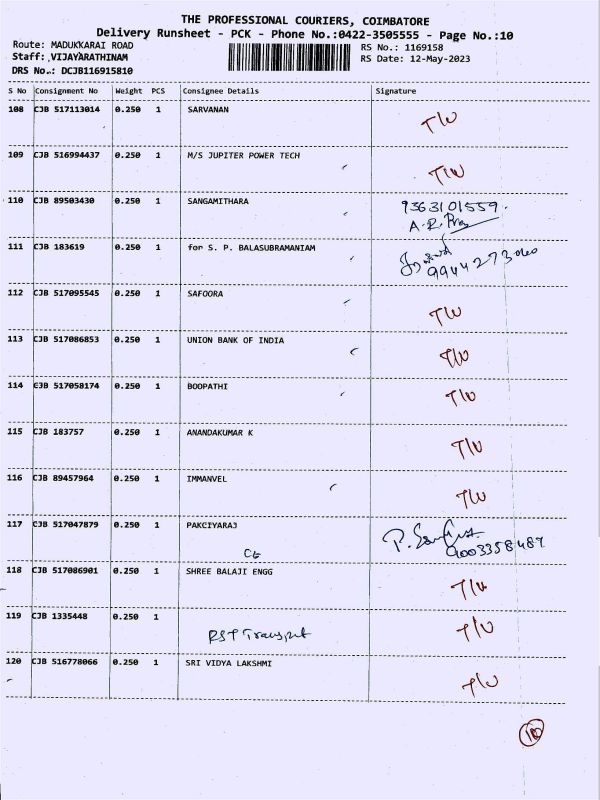 THE PROFESSIONAL COURIERS, COIMBATORE
Delivery Runsheet - PCK - Phone No.:0422-3505555 - Page No.:10
Route: MADUKKARAI ROAD RS No.: 1169158
Staff: VIJAYARATHINAM RS Date: 12-May-2023
DRS No.: DCJB116915810
S No Consignment No Weight PCS Consignee Details Signature
108 CJB 517113014 0.250 1 SARVANAN T/U
109 CJB 516994437 0.250 1 M/S JUPITER POWER TECH T/U
110 CJB 89503430 0.250 1 SANGAMITHARA 9363101559.
A.R.
111 CJB 183619 0.250 1 for S. P. BALASUBRAMANIAM
112 CJB 517095545 0.250 1 SAFOORA T/U
113 CJB 517086853 0.250 1 UNION BANK OF INDIA T/U
114 CJB 517058174 0.250 1 BOOPATHI T/U
115 CJB 183757 0.250 1 ANANDAKUMAR K T/U
116 CJB 89457964 0.250 1 IMMANVEL T/U
117 CJB 517047879 0.250 1 PAKCIYARAJ P.
9003358487
118 CJB 517086901 0.250 1 SHREE BALAJI ENGG T/U
119 CJB 1335448 0.250 1 T/U
RST Transport
120 CJB 516778066 0.250 1 SRI VIDYA LAKSHMI T/U